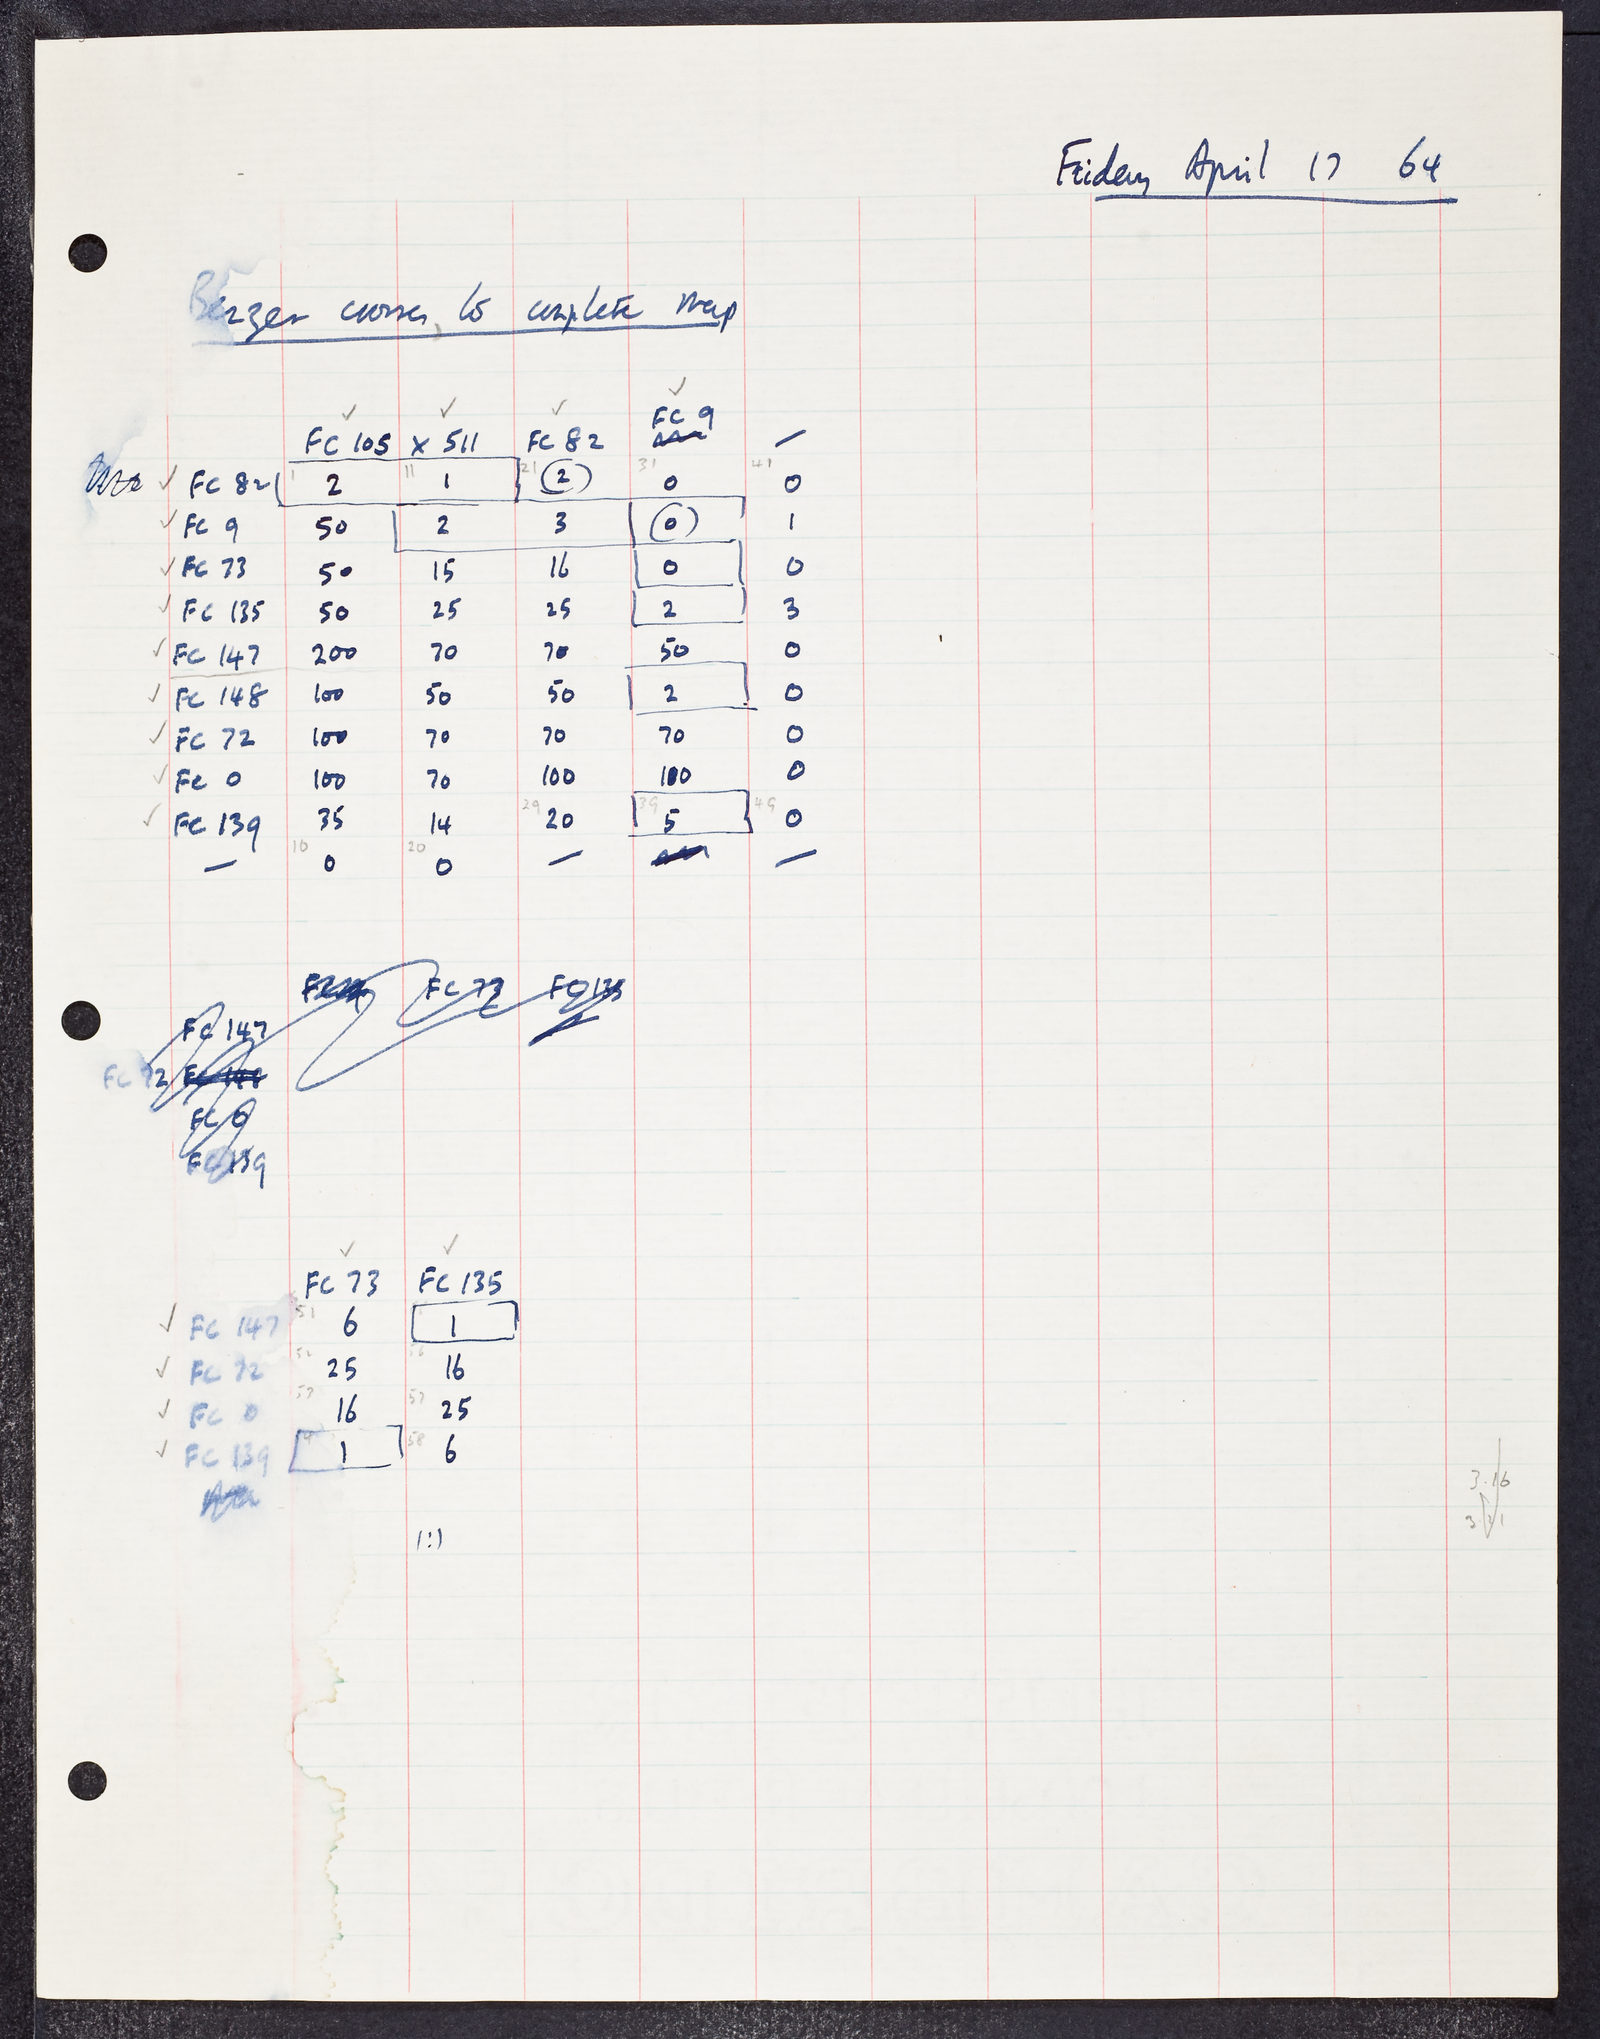 Friday April 17 64
Benzer crosses to complete map
FC 105 X 511 FC 82 FC 9 —
FC 82 1 2 11 1 21 2 31 0 41 0
FC 9 50 2 3 0 1
FC 73 50 15 16 0 0
FC 135 50 25 25 2 3
FC 147 200 70 70 50 0
FC 148 100 50 50 2 0
FC 72 100 70 70 70 0
FC 0 100 70 100 100 0
FC 139 35 14 29 20 39 5 49 0
— 10 0 20 0 — —
FC 73 FC 135
FC 147
FC 72 FC 148
FC 0
FC 139
FC 73 FC 135
FC 147 51 6 1
FC 72 52 25 56 16
FC 0 16 57 25
FC 139 1 58 6
1:1
3.16